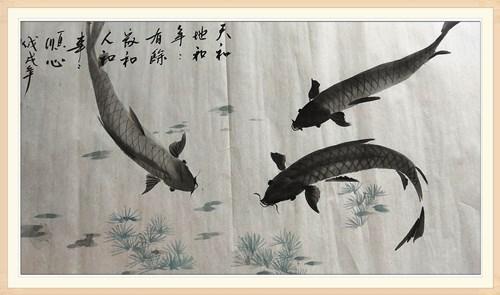 天和
地和
年々
有餘
家和
人和
事々
順心
戊戌年